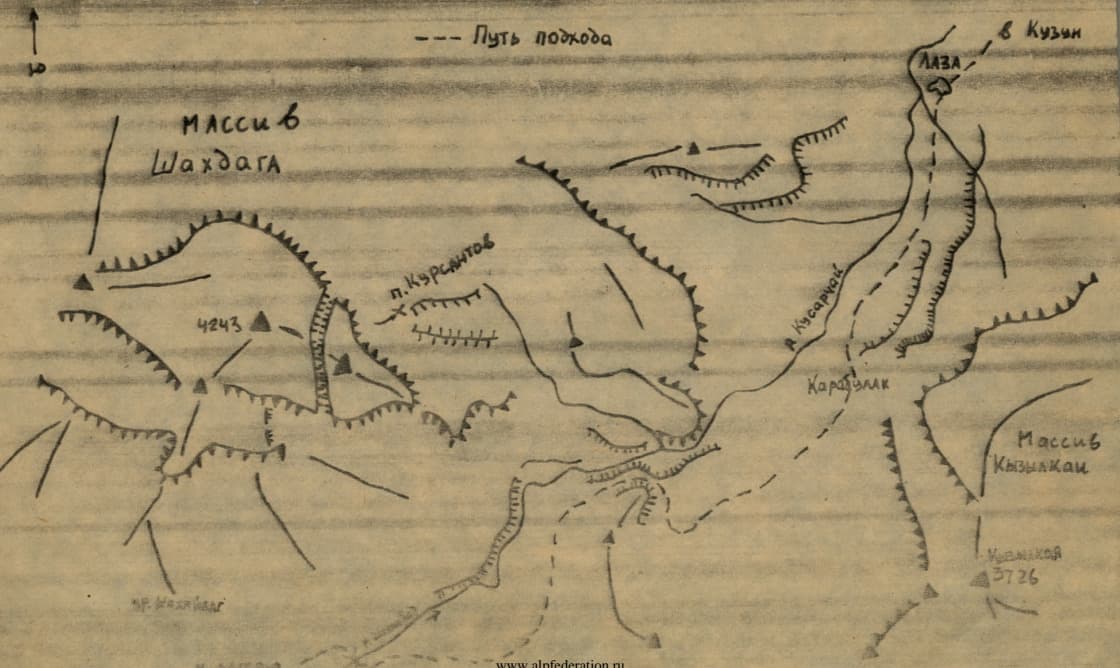 --- Путь подхода
в Кузун
Ю
ЛАЗА
Массив
Шахдага
п. Курсантов
4243
р. Кусарчай
Карабулак
Массив
Кызылкаи
Кызылкая
3726
www.alpfederation.ru